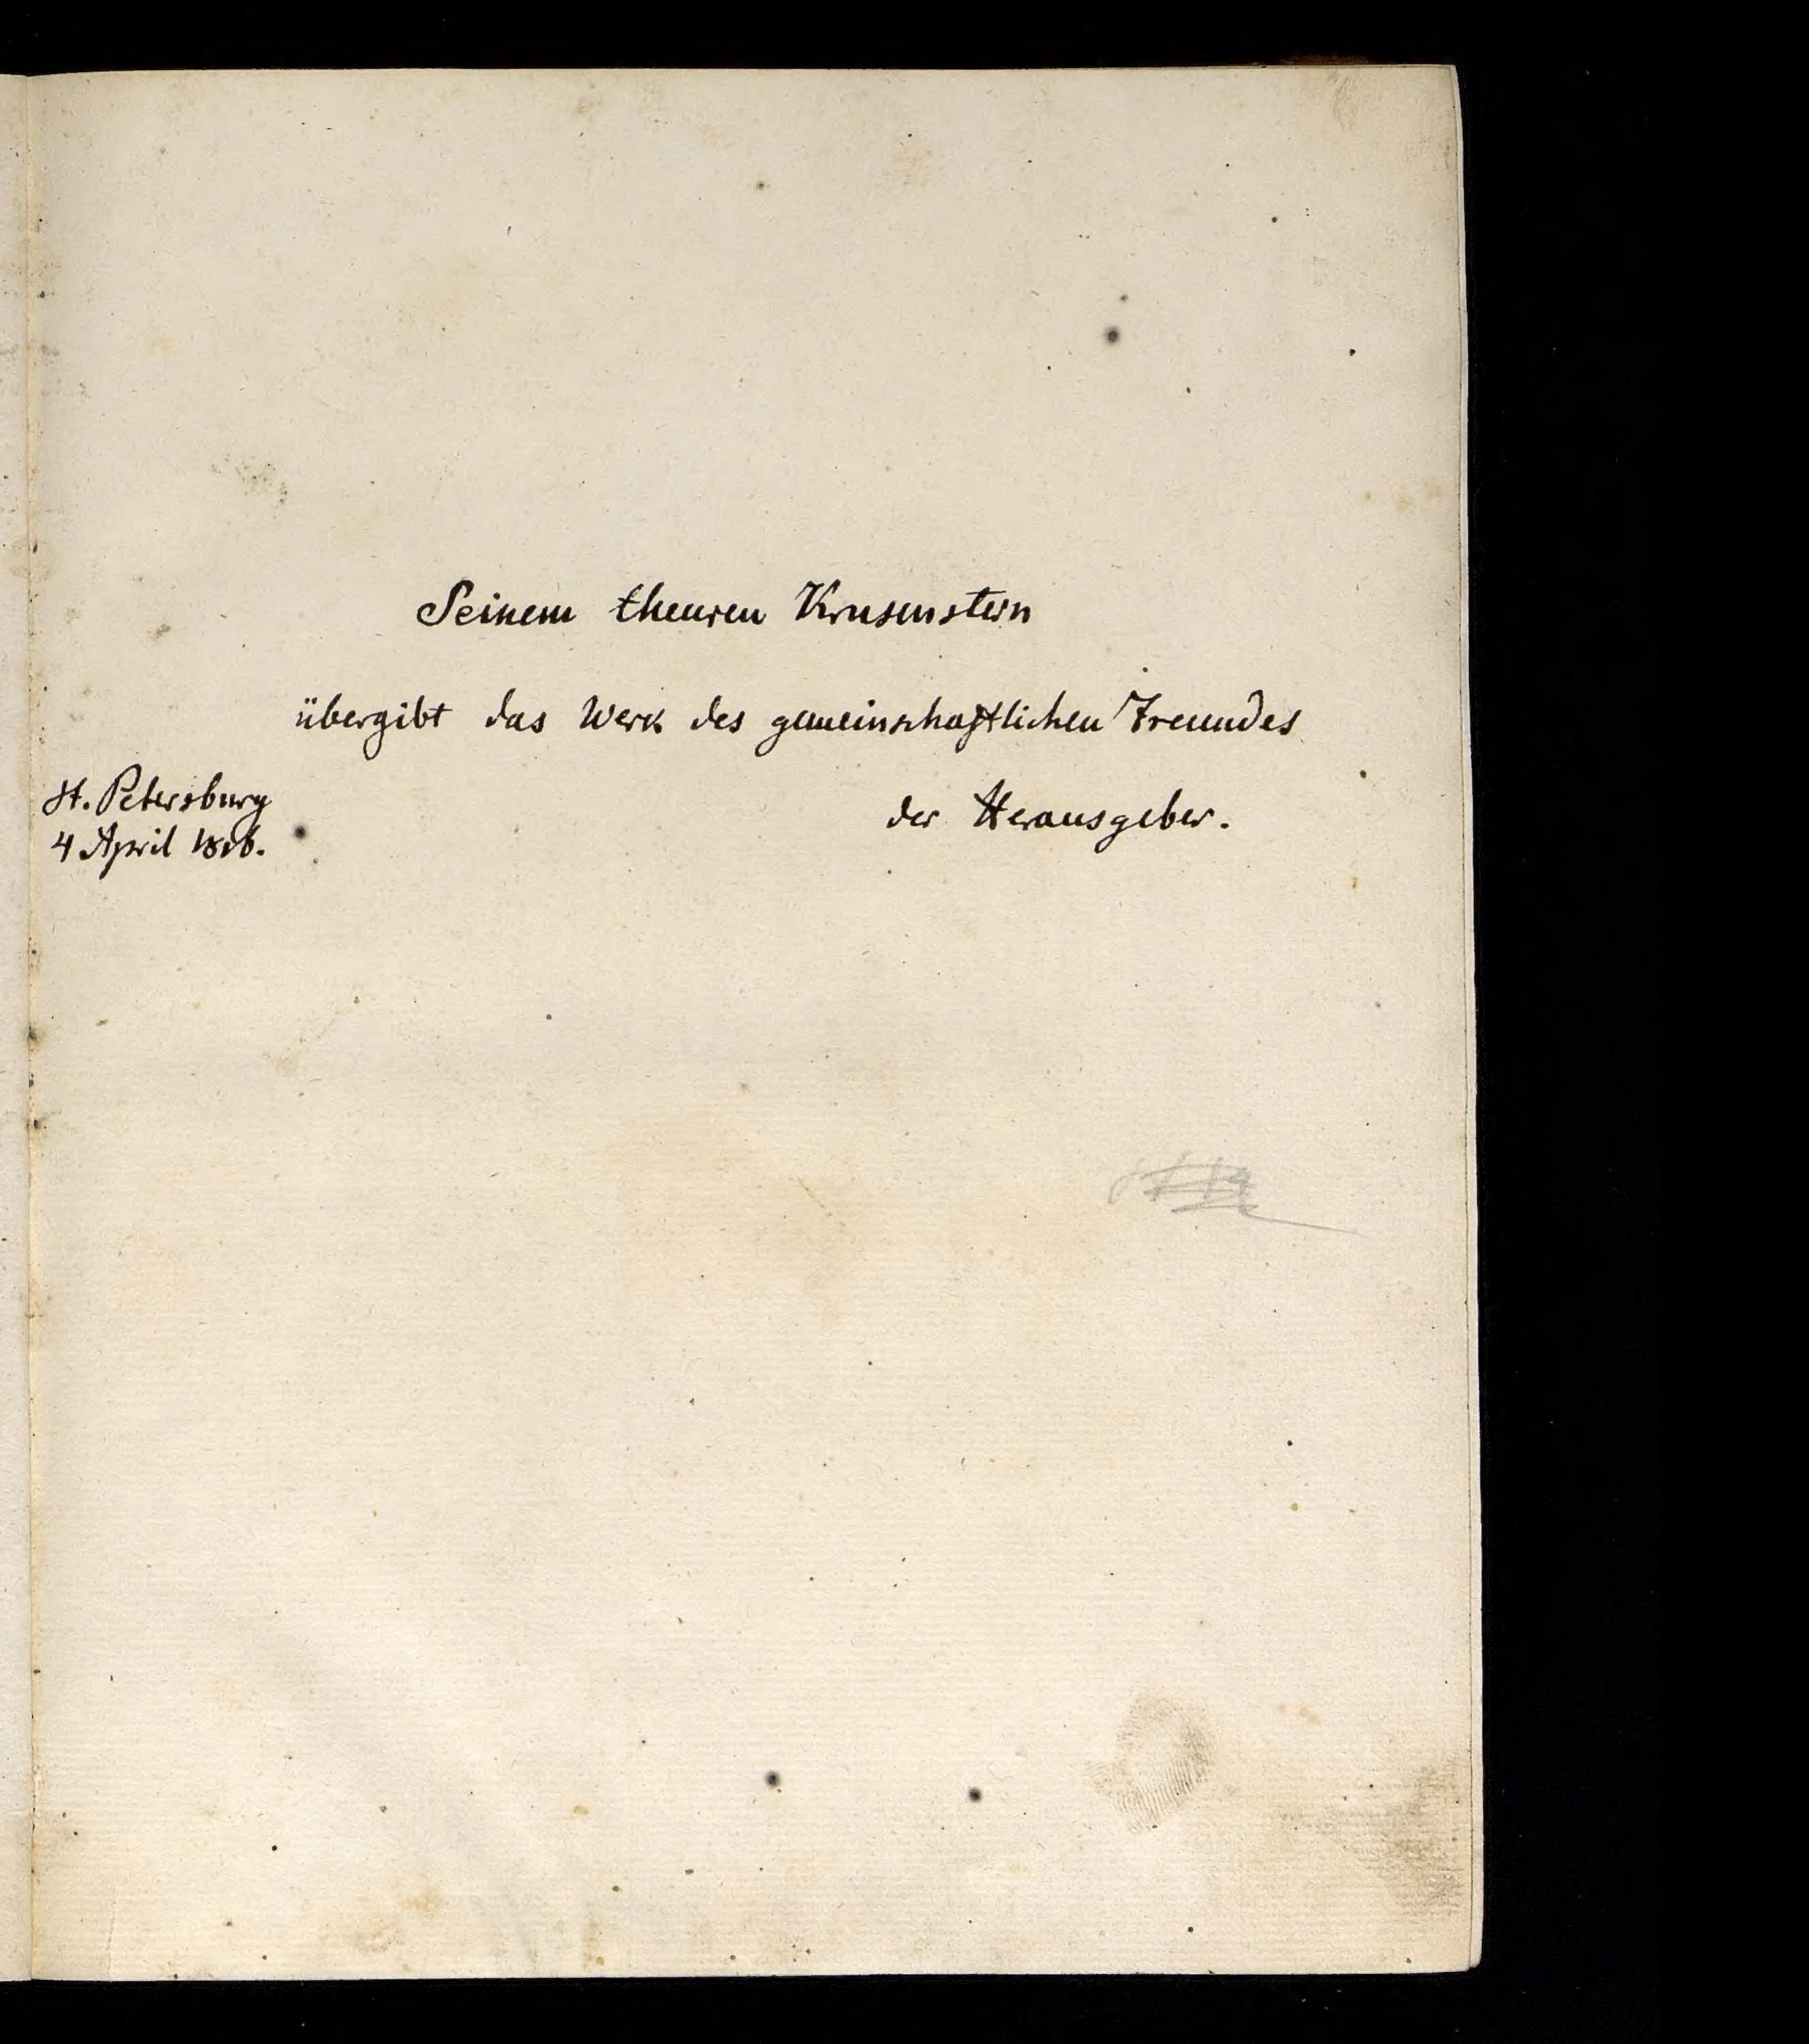 Seinem theuren Krusenstern
übergibt das Werk des gemeinschaftlichen Freundes
der Herausgeber.
St. Petersburg
4 April